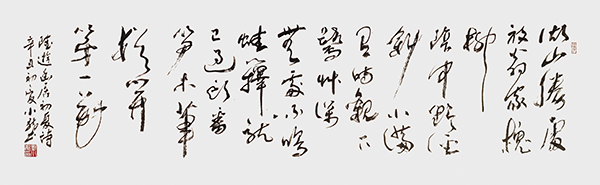 湖山勝處
放翁家槐
柳
陰中野徑
斜水滿
有時觀下
鷺草深
無處不鳴
蛙籜龍
已過頭番
筍木筆
猶開
第一花
陸游幽居初夏詩
辛丑初夏小龍書